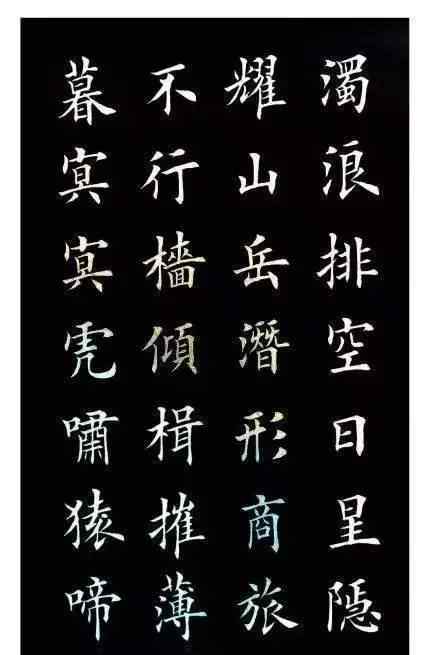 濁浪排空日星隠
耀山岳潛形商旅
不行檣傾楫摧薄
暮冥冥虎嘯猿啼